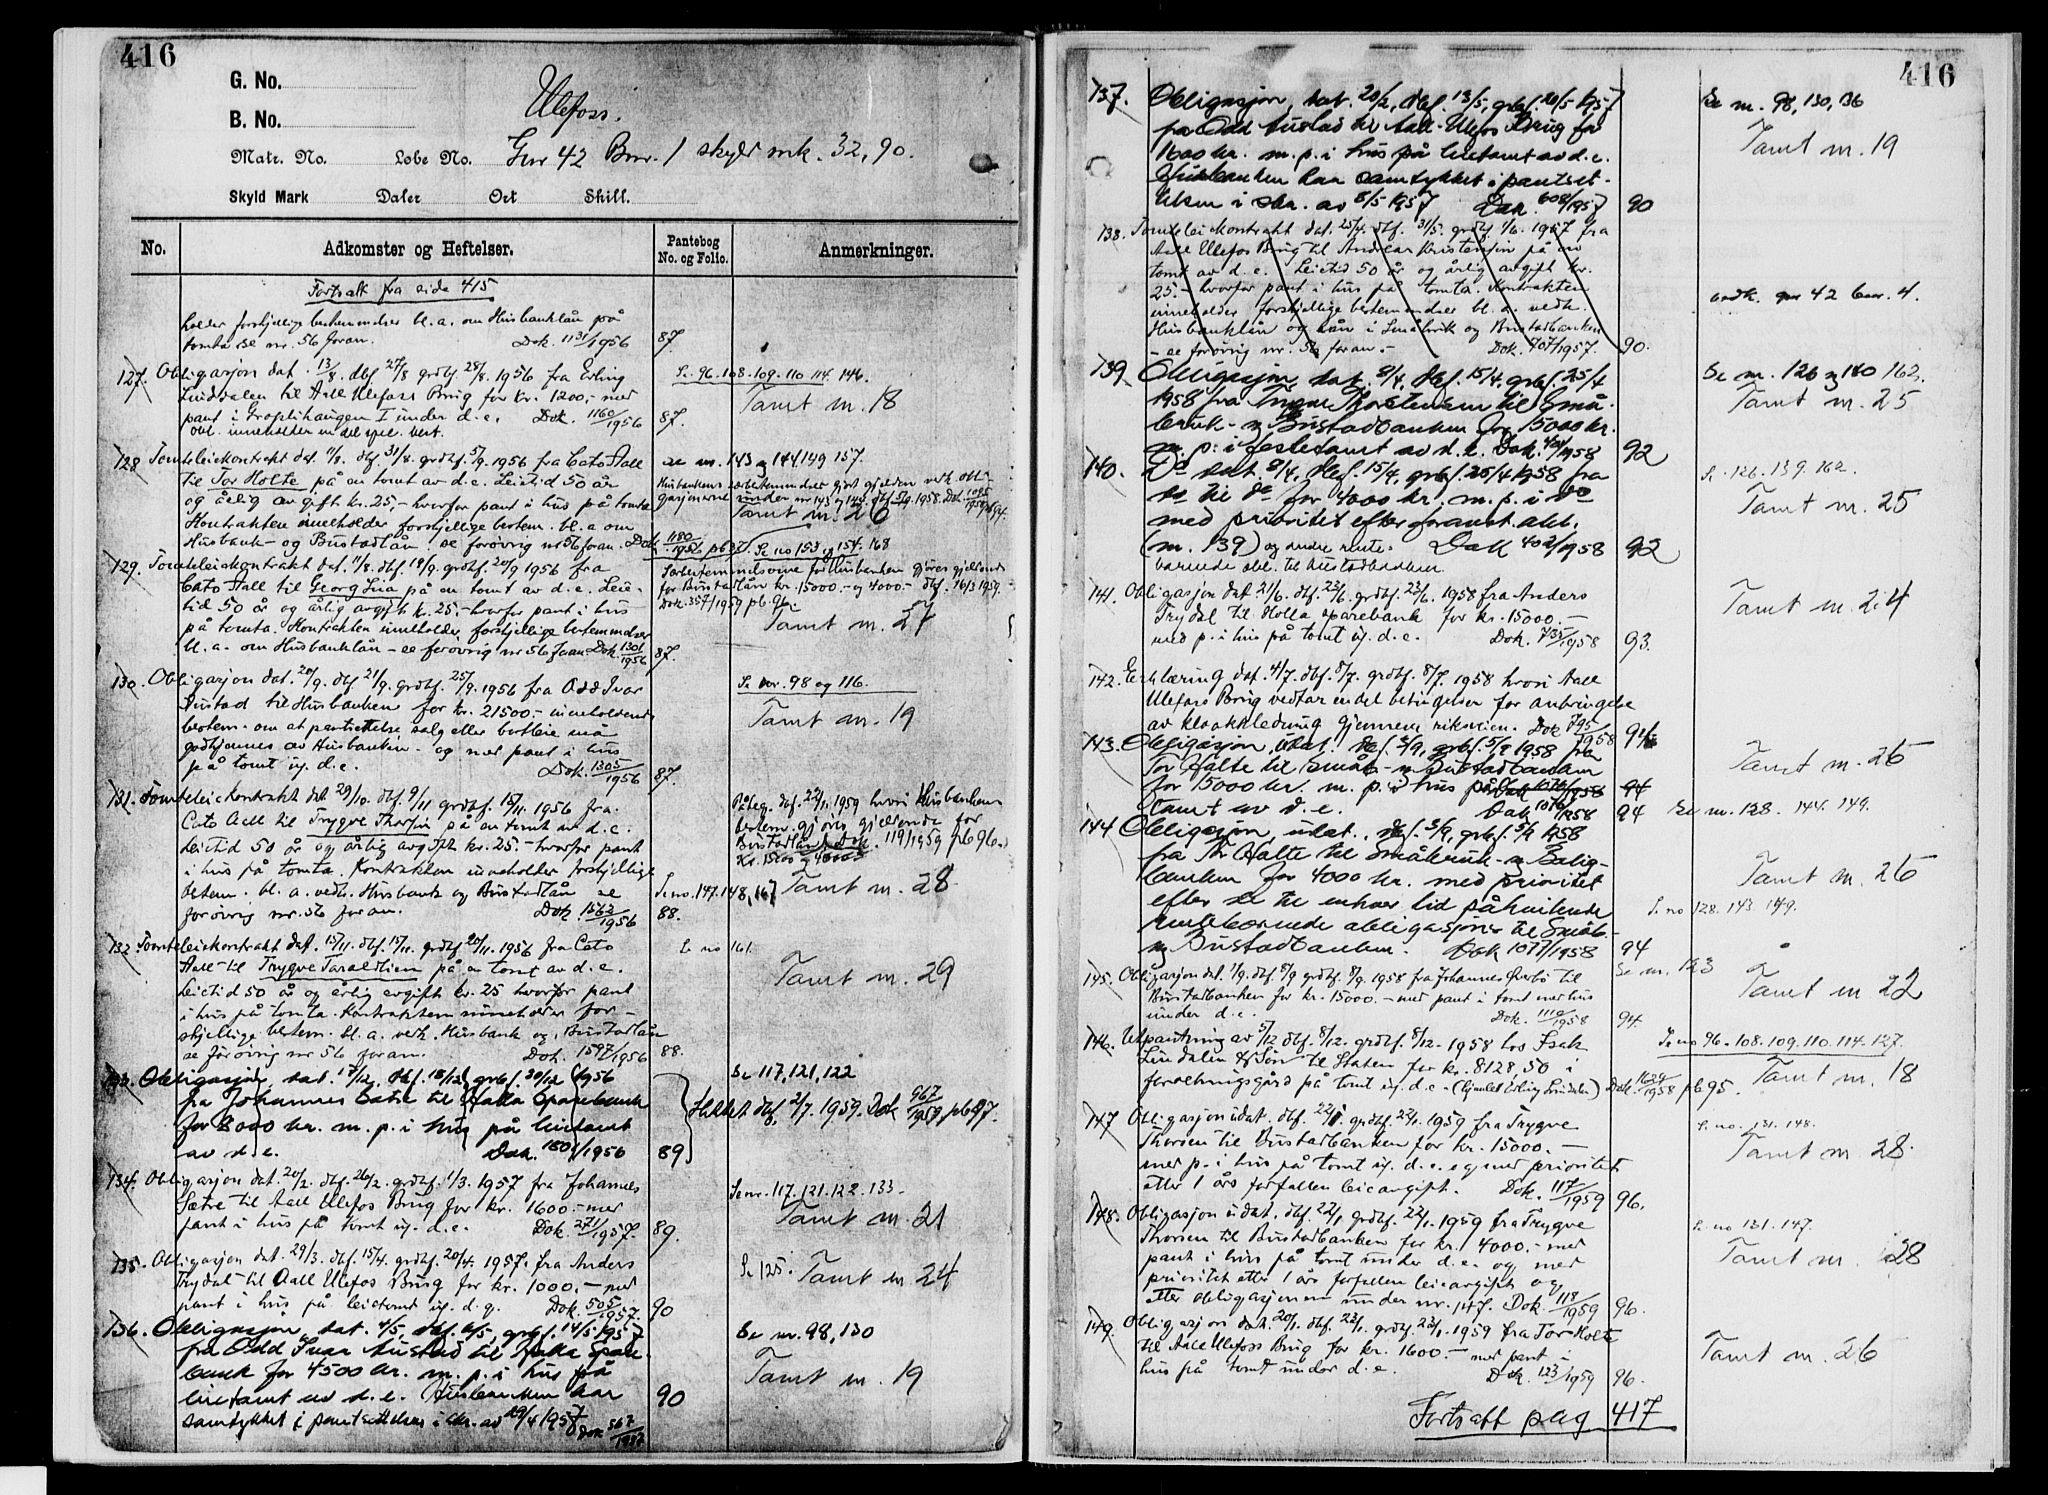 416
G. No.
B. No.
Ulefoss.
Matr. No. Løbe No. Gnr 42 Bnr. 1 skyld mk. 32,90.
Skyld Mark Daler Ort Skill.
No. Adkomster og Heftelser. Pantebog No. og Folio. Anmerkninger.
Fortsatt fra side 415
holder forskjellige bestemmelser bl.a. om Husbanklån på
tomta se nr. 56 foran. Dok. 1131/1956 87.
127. Obligasjon dat. 13/8. dbf 27/8 grdbf 28/8. 1956 fra Erling
Lindalen til Aall Ulefoss Brug for kr. 1200,- med
pant i Grophihaugen I under d.e. Dok. 1160/1956 87.
obl. inneholder en del spes. best.
Se 96-108-109-110 114. 146.
Tomt nr. 18
128 Tomteleiekontrakt dat. 11/8. dbf 31/8. grdbf. 5/9. 1956 fra Cato Aall
til Tor Holte på en tomt av d.e. Leietid 50 år
og årlig avgift kr. 25,- hvorfor pant i hus på tomta
Kontrakten inneholder forskjellige bestem. bl.a om
Husbank- og Bustadlån se forøvrig nr 56 foran. Dok 1180/1956 pb 87.
se nr. 143 og 144. 149 157.
Husbankens særbestemmelser gjort gjelden vedk. obli-
gasjonene under nr 143 og 144. dbf 5/9. 1958. Dok 1095/1958 pb 94.
Tomt nr. 26
129. Tomteleiekontrakt dat. 11/8. dbf. 18/9. grdbf. 20/9 1956 fra
Cato Aall til Georg Lia på en tomt av d.e. Leie-
tid 50 år og årlig avgift kr. 25.- hvorfor pant i hus
på tomta. Kontrakten inneholder forskjellige bestemmelser
bl.a. om Husbanklån - se forøvrig nr 56 foran Dok 1301/1956 87.
Se no 153 og 154. 168
Særbestemmelsene for Husbanken gjøres gjeldende
for Bustadlån kr. 15000.- og 4000.- dbf. 16/3 1959.
Dok. 357/1959 pb. 96.
Tomt nr. 27
130. Obligasjon dat. 20/9. dbf. 21/9. grdbf. 25/9. 1956 fra Odd Ivar
Austad til Husbanken for kr. 21500.- inneholdende
bestem. om at pantsettelse salg eller bortleie må
godkjennes av Husbanken - og med pant i hus
på tomt ug. d.e. Dok. 1305/1956 87.
Se nr. 98 og 116.
Tomt nr. 19
131. Tomteleiekontrakt dat 29/10. dbf. 9/11 grdbf. 15/11. 1956 fra
Cato Aall til Trygve Thorsen på en tomt av d.e.
Leietid 50 år og årlig avgift kr. 25.- hvorfor pant
i hus på tomta. Kontrakten inneholder forskjellige
bestem. bl.a. vedk. Husbank og Bustadlån se
forøvrig nr. 56 foran. Dok 1562/1956 88.
Påteg. dbf. 22/1. 1959 hvori Husbankens
bestem. gjøres gjeldende for
Bustadlån Dok. 119/1959 pb 96.
kr. 15000 og 4000
Se no. 147. 148, 167 Tomt nr. 28
132 Tomteleiekontrakt dat. 15/11. dbf. 15/11. grdbf 20/11. 1956 fra Cato
Aall til Trygve Taraldlien på en tomt av d.e.
Leietid 50 år og årlig avgift kr. 25 hvorfor pant
i hus på tomta. Kontrakten inneholder for-
skjellige bestem. bl.a. vedk. Husbank og Bustadlån
se forøvrig nr 56 foran. Dok. 1597/1956 88.
Se no 161.
Tomt nr. 29
133. Obligasjon, dat. 17/12, dbf. 18/12, grbf. 20/12 1956
fra Johannes Sætre til Holla Sparebank
for 8000 kr. m.p. i hus på leietomt
av d.e. Dok. 1801/1956 89
Se 117, 121, 122
Slettet dbf. 2/7. 1959. Dok 967/1959 pb 97.
134. Obligasjon dat. 20/2. dbf. 26/2. grdbf. 1/3. 1957 fra Johannes
Sætre til Aall Ulefos Brug for kr. 1600.- med
pant i hus på tomt ug. d.e. Dok 271/1957. 89.
Se nr. 117. 121. 122. 133.
Tomt nr. 21
135. Obligasjon dat. 29/3. dbf. 15/4. grdbf. 20/4. 1957. fra Anders
Trydal til Aall Ulefos Brug for kr. 1000.- med
pant i hus på leietomt ug. d.g. Dok. 505/1957. 90
Se 125. Tomt nr. 24
136. Obligasjon, dat. 4/5, dbf. 6/5, grbf. 14/5 1957
fra Odd Ivar Austad til Holla Spare-
bank for 4500 kr. m.p. i hus på
leietomt av d.e. Husbanken har 90
samtykket i pantsettelsen i skr. av 29/4 1957 Dok 567/1957
Se nr. 98, 130
Tomt nr. 19
416
137. Obligasjon, dat. 20/2, dbf. 13/5, grbf. 20/5 1957
fra Odd Austad til Aall-Ulefos Brug for
1600 kr. m.p. i hus på leietomt av d.e.
Husbanken har samtykket i pantset-
telsen i skr. av 8/5 1957 Dok. 608/1957 90
Se nr. 98, 130, 136
Tomt nr. 19
138. Tomteleiekontrakt dat. 25/4. dbf. 31/5. grdbf. 1/6. 1957 fra
Aall Ulefos Brug til Andreas Kristensen på en
tomt av d.e. Leietid 50 år og årlig avgift kr.
25.- hvorfor pant i hus på tomta. Kontrakten
inneholder forskjellige bestemmelser bl.a. vedk.
Husbanklån og lån i Småbruk og Bustadbanken
- se forøvrig nr. 56 foran.- Dok. 707/1957. 90.
vedk. gnr 42 bnr. 4.
139. Obligasjon, dat. 8/4, dbf. 15/4, grbf. 25/4
1958 fra Yngve Thorstensen til Små-
bruk- og Bustadbanken for 15000 kr.
m.p. i festetomt av d.e. Dok. 401/1958 92
Se nr. 126 og 140 162.
Tomt nr. 25
140. Do dat 8/4, dbf. 15/4, grbf. 25/4 1958 fra
do til do for 4000 kr. m.p. i do
med prioritet efter foranst. obl.
(nr. 139) og andre rente- Dok 402/1958 92
bærende obl. til Bustadbanken.
Se 126. 139. 162.
Tomt nr. 25
141. Obligasjon dat 21/6. dbf. 23/6. grdbf. 23/6. 1958 fra Anders
Trydal til Holla sparebank for kr. 15000.-
med p. i hus på tomt ug. d.e. Dok. 735/1958 93.
Tomt nr. 24
142. Erklæring dat. 4/7. dbf. 8/7. grdbf. 8/7. 1958 hvori Aall
Ulefoss Brug vedtar endel betingelser for anbringelse
av kloakkledning gjennem riksveien. Dok 795/1958 94
143. Obligasjon, udat. dbf. 3/9, grbf. 5/9 1958 fra
Tor Holte til Småb- og Bustadbanken
for 15000 kr. m.p. i hus på Dok 1076/1958 94
tomt av d.e. Dok 1076/1958 94
Tomt nr. 26
Se nr. 128. 144. 149.
144 Obligasjon, udat., dbf. 3/9, grbf. 5/9 1958
fra Th. Holte til Småbruk- og Bolig-
banken for 4000 kr. med prioritet
efter de til enhver tid påhvilende
rentebærende obligasjoner til Småb-
og Bustadbanken. Dok 1077/1958 94
Tomt nr. 26
Se no 128. 143. 149.
145. Obligasjon dat. 1/9. dbf. 8/9 grdbf. 8/9. 1958 fra Johannes Øverbø til
Bustadbanken for kr. 15000.- med pant i tomt med hus
under d.e. Dok. 1110/1958 94.
Se nr. 123
Tomt nr 22
146. Utpantning av 5/12 dbf. 8/12. grdbf. 8/12- 1958 hos Isak
Lindalen & Søn til Staten for kr. 8128,50 i
forretningsgård på tomt ug. d.e.- (hjemlet Erling Lindalen) Dok. 1629/1958 pb 95.
Se no 96-108.109.110.114.127.
Tomt nr. 18
147 Obligasjon udat. dbf. 22/1. grdbf. 22/1. 1959 fra Trygve
Thorsen til Bustadbanken for kr. 15000.-
med p. i hus på tomt ug. d.e. og med prioritet
etter 1 års forfallen leieavgift. Dok. 117/1959 96.
Se no. 131. 148.
Tomt nr 28.
148. Obligasjon udat. dbf. 22/1 grdbf. 22/1. 1959 fra Trygve
Thorsen til Bustadbanken for kr. 4000.- med
pant i hus på tomt under d.e. og med
prioritet etter 1 års forfallen leieavgift og
etter obligasjonen under nr. 147. Dok. 118/1959 96.
Se no 131. 147.
Tomt nr. 28
149. Obligasjon dat. 20/1. dbf. 23/1. grdbf. 23/1. 1959 fra Tor Holte
til Aall Ulefoss Brug for kr. 1600.- med pant i
hus på tomt under d.e. Dok. 123/1959 96.
Tomt nr. 26
Fortsatt pag 417